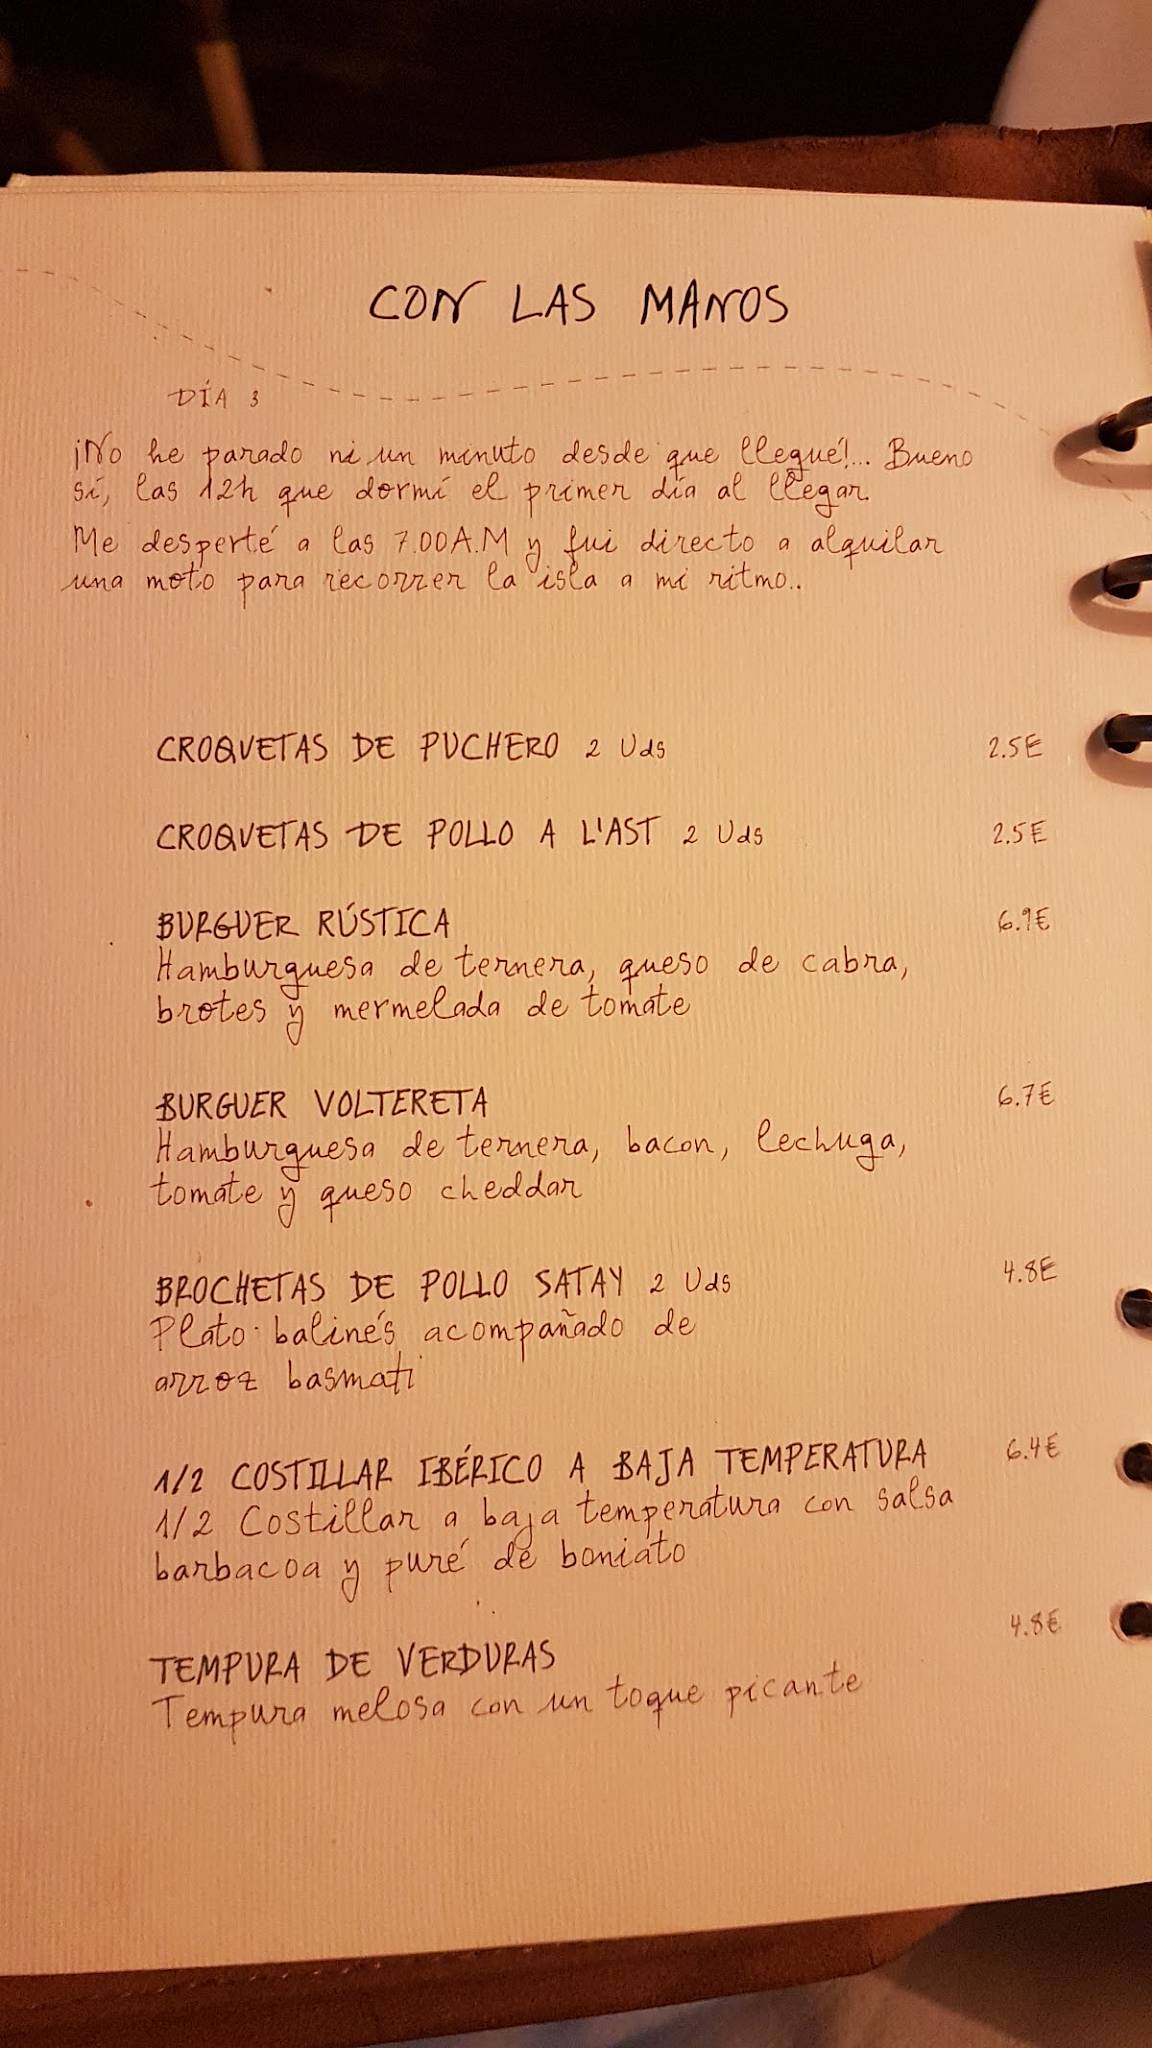 CON LAS MANOS
DÍA 3
¡No he parado ni un minuto desde que llegué!... Bueno
sí, las 12h que dormí el primer día al llegar.
Me desperté a las 7.00A.M y fui directo a alquilar
una moto para recorrer la isla a mi ritmo..
CROQUETAS DE PUCHERO 2 Uds 2.5€
CROQUETAS DE POLLO A L'AST 2 Uds 2.5€
BURGUER RÚSTICA 6.9€
Hamburguesa de ternera, queso de cabra,
brotes y mermelada de tomate
BURGUER VOLTERETA 6.7€
Hamburguesa de ternera, bacon, lechuga,
tomate y queso cheddar
BROCHETAS DE POLLO SATAY 2 Uds 4.8€
Plato balinés acompañado de
arroz basmati
1/2 COSTILLAR IBÉRICO A BAJA TEMPERATURA 6.4€
1/2 Costillar a baja temperatura con salsa
barbacoa y puré de boniato
TEMPURA DE VERDURAS 4.8€
Tempura melosa con un toque picante